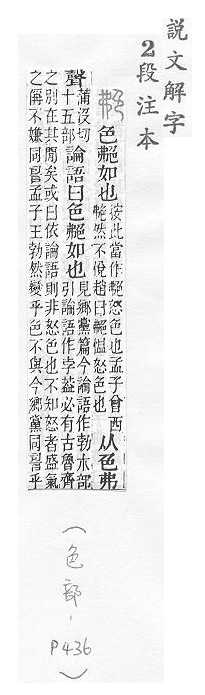 說文解字
2段注本
艴 色艴如也
按此當作艴怒色也孟子曾西
艴然不悅趙曰艴慍怒色也
从色弗
聲
蒲沒切
十五部
論語曰色艴如也
見鄉黨篇今論語作勃木部
引論語作孛葢必有古魯齊
之別在其閒矣或曰依論語則非怒色也不知怒者盛氣
之偁不嫌同䛐孟子王勃然變乎色不與今鄉黨同䛐乎
(色部,
P436)